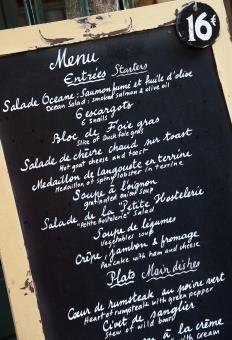 16€
Menu
Entrées Starters
Salade Océane: Saumon fumé et huile d'olive
Ocean Salad: smoked salmon & olive oil
6 escargots
6 Snails
Bloc de Foie gras
Slice of Duck foie gras
Salade de chèvre chaud sur toast
Hot goat cheese and toast
Médaillon de langouste en terrine
Medaillon of spiny lobster in terrine
Soupe à l'oignon
gratinated onion Soup
Salade de la "Petite Hostellerie"
"Petite hostellerie" Salad
Soupe de légumes
Vegetables soup
Crêpe jambon & fromage
Pancake with ham and cheese
Plats Main dishes
Cœur de rumsteak au poivre vert
Heart of rumpsteak with green pepper
Civet de sanglier
Stew of wild boar
à la crème
with cream